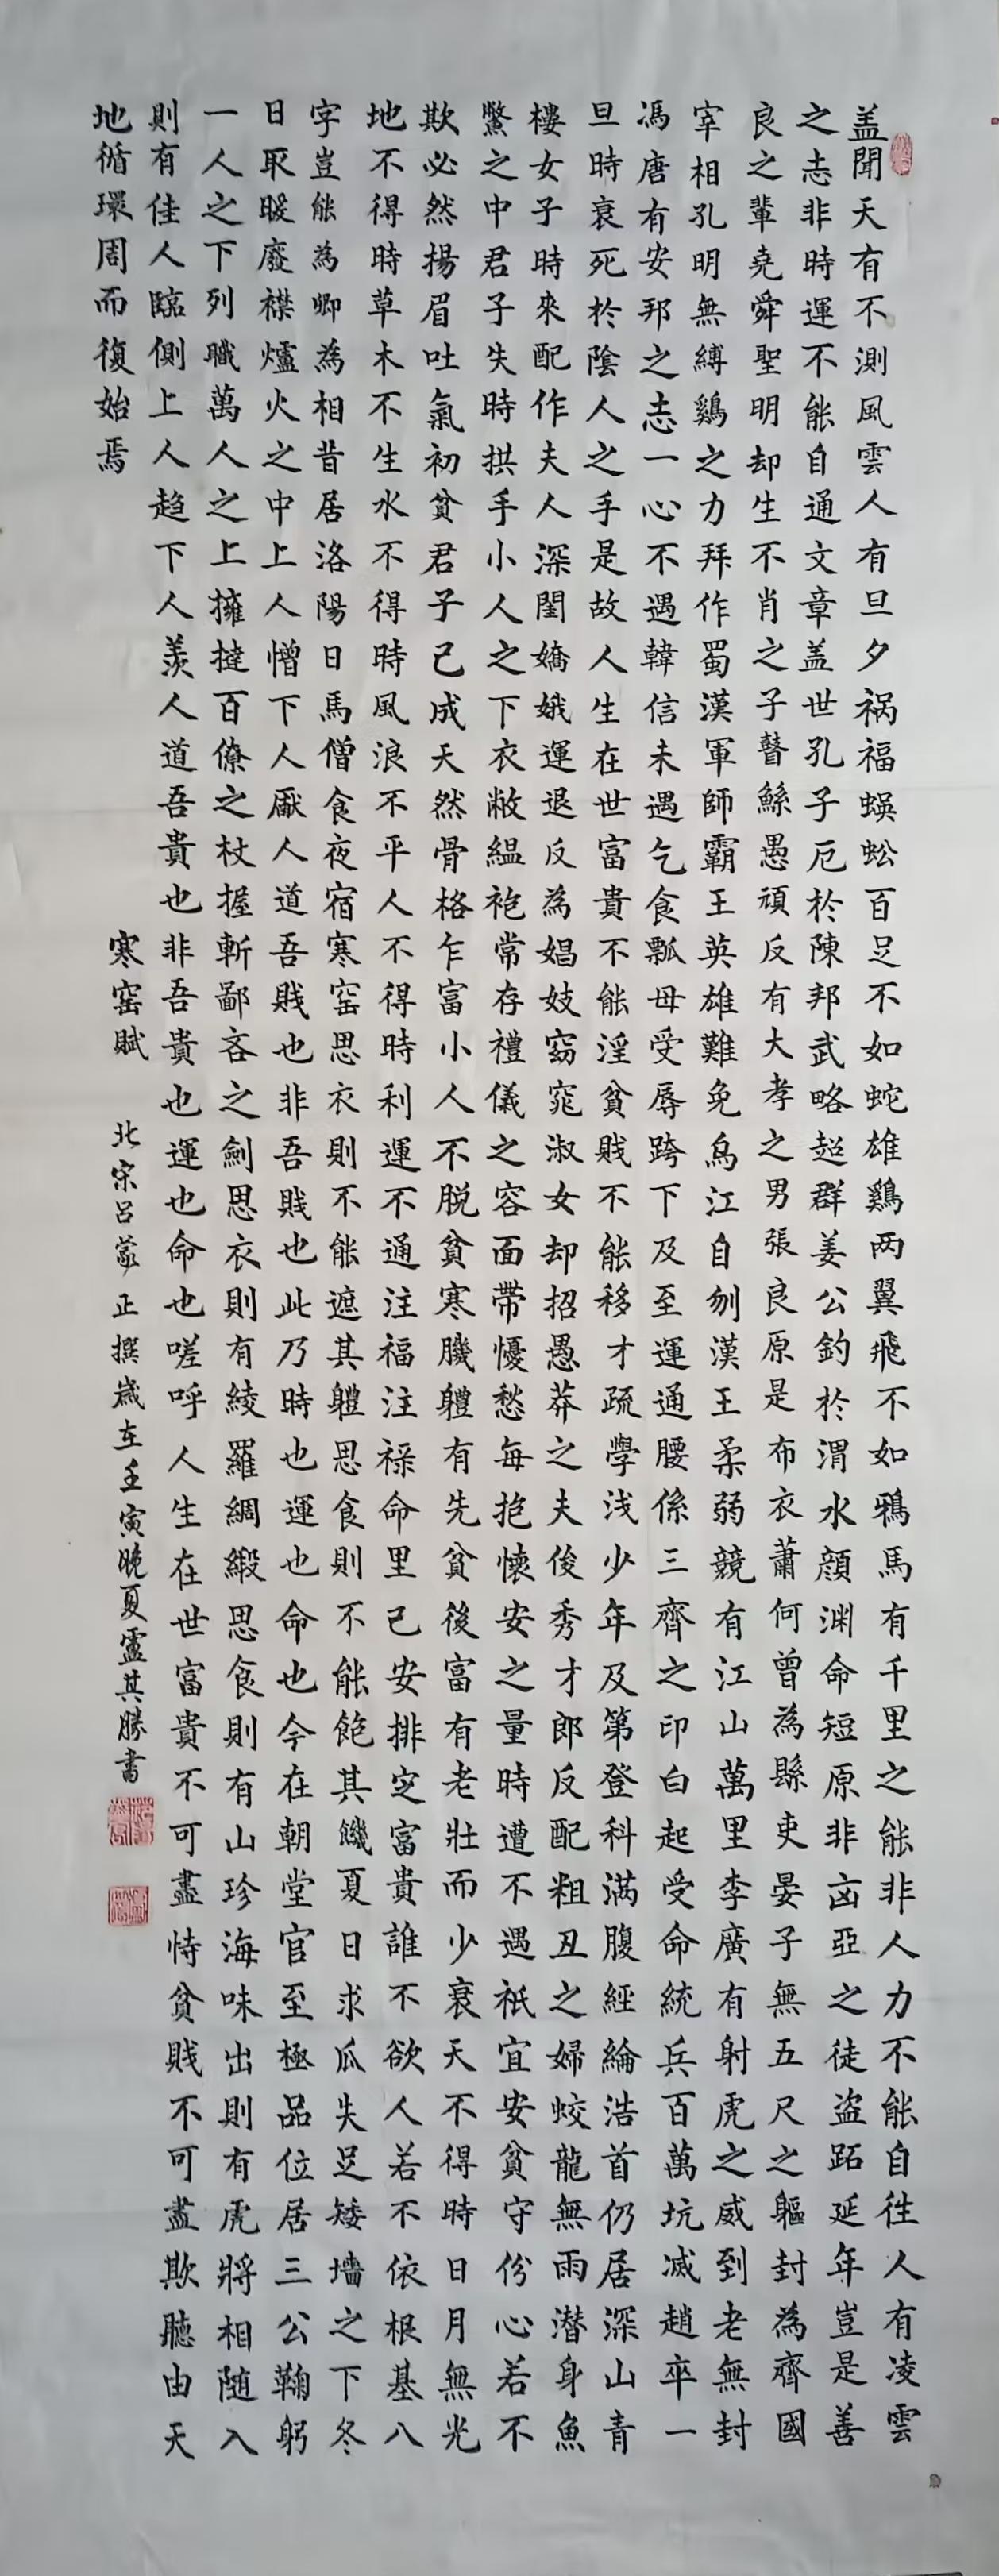 盖聞天有不測風雲人有旦夕祸福蜈蚣百足不如蛇雄鷄两翼飛不如鴉馬有千里之能非人力不能自往人有凌雲
之志非時運不能自通文章盖世孔子厄於陳邦武略超群姜公釣於渭水顔渊命短原非凶亞之徒盗跖延年豈是善
良之輩堯舜聖明却生不肖之子瞽鯀愚頑反有大孝之男張良原是布衣蕭何曾為縣吏晏子無五尺之軀封為齊國
宰相孔明無縛鷄之力拜作蜀漢軍師霸王英雄難免烏江自刎漢王柔弱競有江山萬里李廣有射虎之威到老無封
馮唐有安邦之志一心不遇韓信未遇乞食瓢母受辱跨下及至運通腰係三齊之印白起受命統兵百萬坑滅趙卒一
旦時衰死於陰人之手是故人生在世富貴不能淫貧賤不能移才疏學浅少年及第登科满腹經綸浩首仍居深山青
樓女子時來配作夫人深閨嬌娥運退反為娼妓窈窕淑女却招愚莽之夫俊秀才郎反配粗丑之婦蛟龍無雨潜身魚
鱉之中君子失時拱手小人之下衣敝緼袍常存禮儀之容面帶憂愁每抱懷安之量時遭不遇祇宜安貧守份心若不
欺必然揚眉吐氣初貧君子已成天然骨格乍富小人不脱貧寒臟軆有先貧後富有老壯而少衰天不得時日月無光
地不得時草木不生水不得時風浪不平人不得時利運不通注福注禄命里已安排定富貴誰不欲人若不依根基八
字豈能為卿為相昔居洛陽日馬僧食夜宿寒窑思衣則不能遮其軆思食則不能飽其饑夏日求瓜失足矮墻之下冬
日取暖廢襟爐火之中上人憎下人厭人道吾賎也非吾賎也此乃時也運也命也今在朝堂官至極品位居三公鞠躬
一人之下列職萬人之上擁撻百僚之杖握斬鄙吝之劍思衣則有綾羅綢緞思食則有山珍海味出則有虎將相随入
則有佳人臨側上人趋下人羡人道吾貴也非吾貴也運也命也嗟呼人生在世富貴不可盡恃貧賎不可盡欺聽由天
地循環周而復始焉
寒窑賦 北宋吕蒙正撰歲在壬寅晚夏盧其勝書